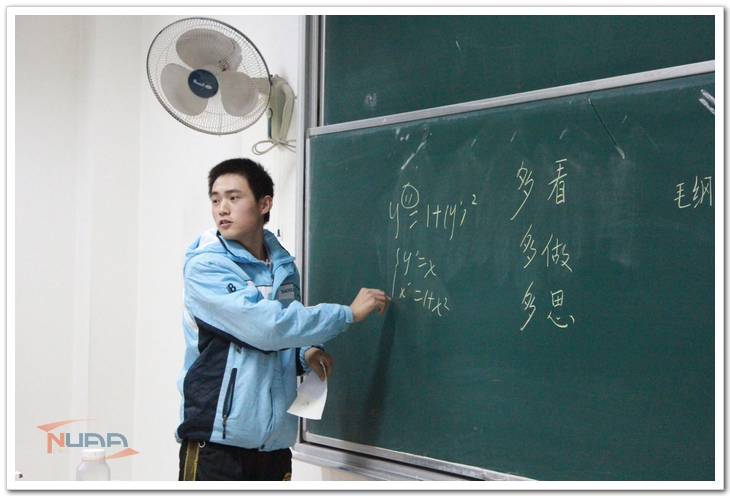 y''=1+(y')²
y'=x
x'=1+x²
多看
多做
多思
毛纲
NUAA